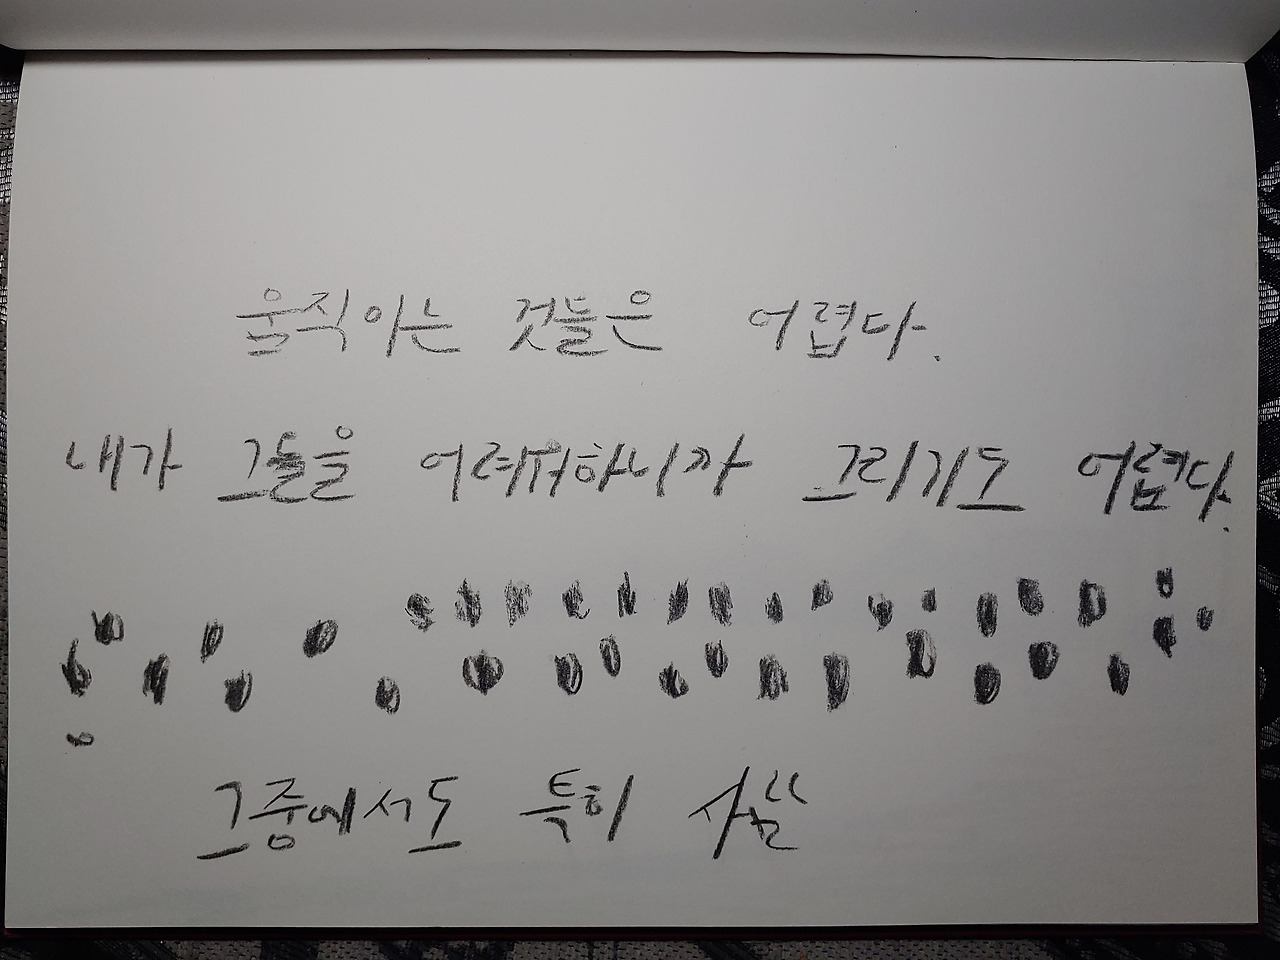 움직이는 것들은 어렵다.
내가 그들을 어려워하니까 그리기도 어렵다.
그중에서도 특히